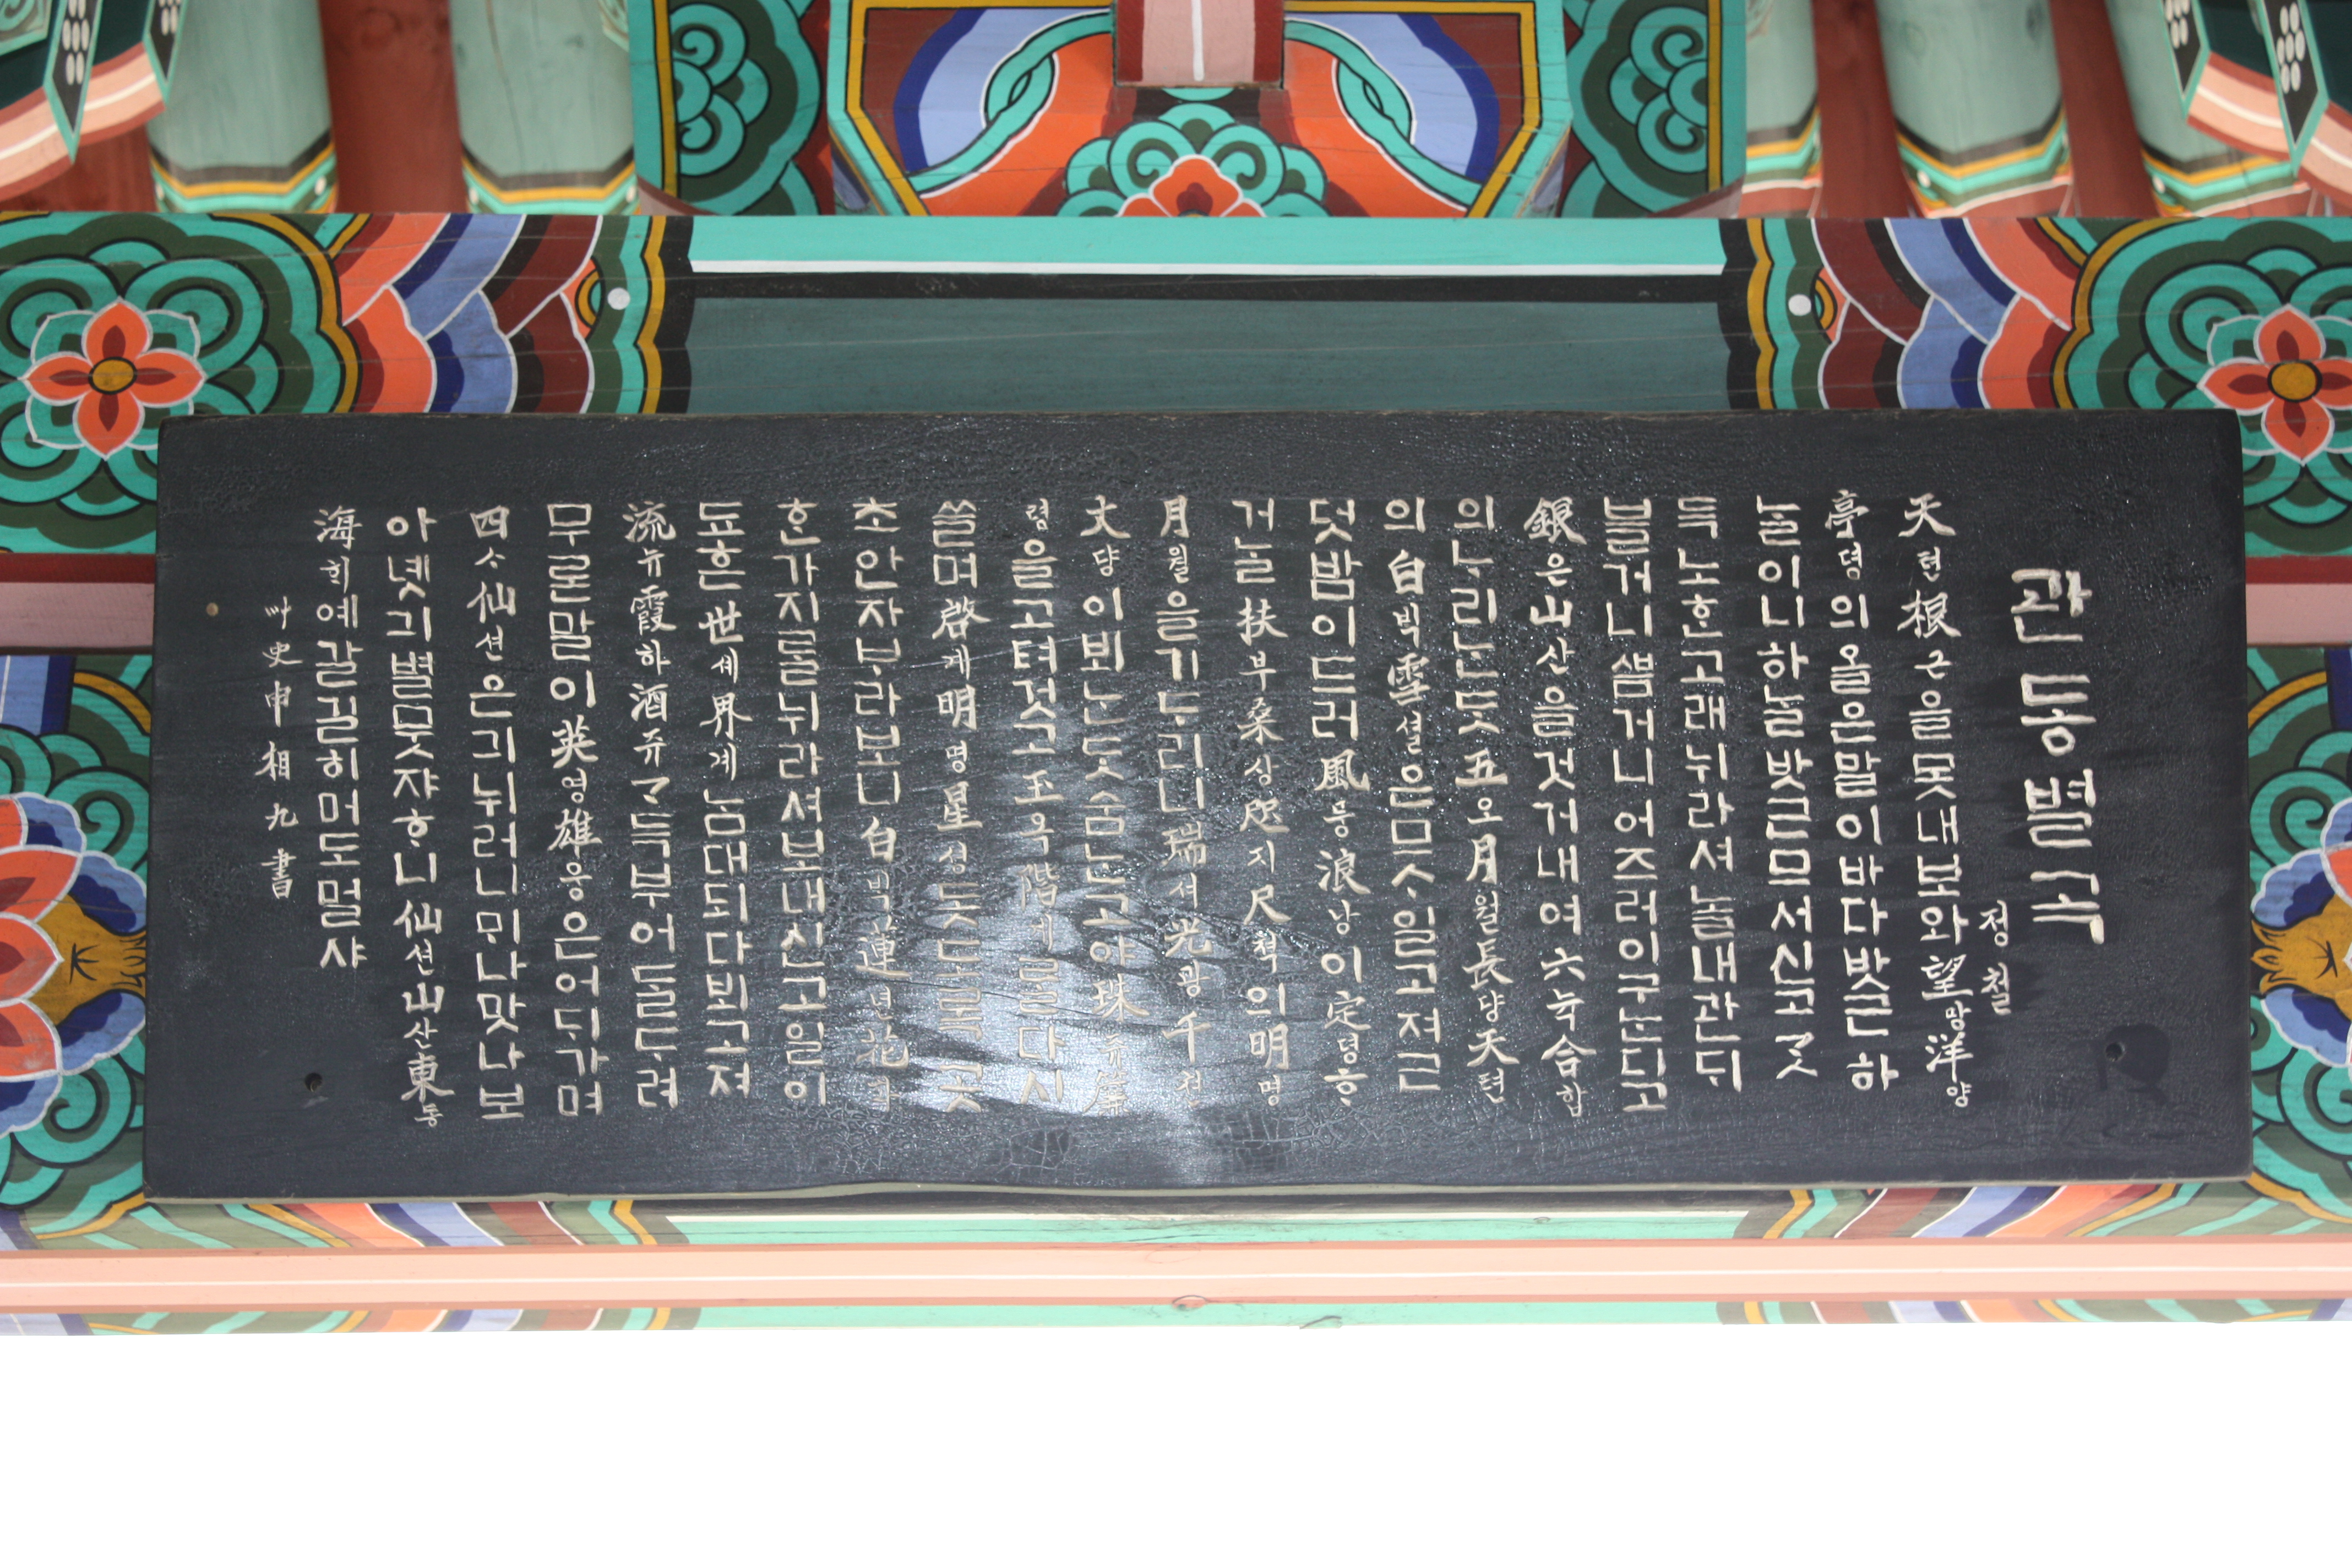 관동별곡
정철
天텬根근을못내보와望망洋양
亭뎡의올은말이바다밧근하
ᄂᆞᆯ이니하ᄂᆞᆯ밧근므서신고ᄀᆞᆺ
득노ᄒᆞᆫ고래뉘라셔놀내관ᄃᆡ
블거니ᄲᅳᆷ거니어즈러이구ᄂᆞᆫ디고
銀은山산을것거내여六뉵合합
의ᄂᆞ리ᄂᆞᆫᄃᆞᆺ五오月월長댱天텬
의白ᄇᆡᆨ雪셜은므ᄉᆞ일고져근
덧밤이드러風풍浪낭이定뎡ᄒᆞ
거ᄂᆞᆯ扶부桑상咫지尺쳑의明명
月월을기ᄃᆞ리니瑞셔光광千쳔
丈댱이뵈ᄂᆞᆫᄃᆞᆺ숨ᄂᆞᆫ고야珠쥬簾
렴을고텨것고玉옥階계ᄅᆞᆯ다시
쓸며啓계明명星셩돗도록곳
초안자ᄇᆞ라보니白ᄇᆡᆨ蓮년花화
ᄒᆞᆫ가지ᄅᆞᆯ뉘라셔보내신고일이
됴흔世셰界계ᄂᆞᆷ대되다뵈고져
流뉴霞하酒쥬ᄀᆞ득부어ᄃᆞᆯᄃᆞ려
무론말이英영雄웅은어ᄃᆡ가며
四ᄉᆞ仙션은긔뉘러니ᄆᆡ나맛나보
아녯긔별뭇쟈ᄒᆞ니仙션山산東동
海ᄒᆡ예갈길히머도멀샤
艸史申相九書